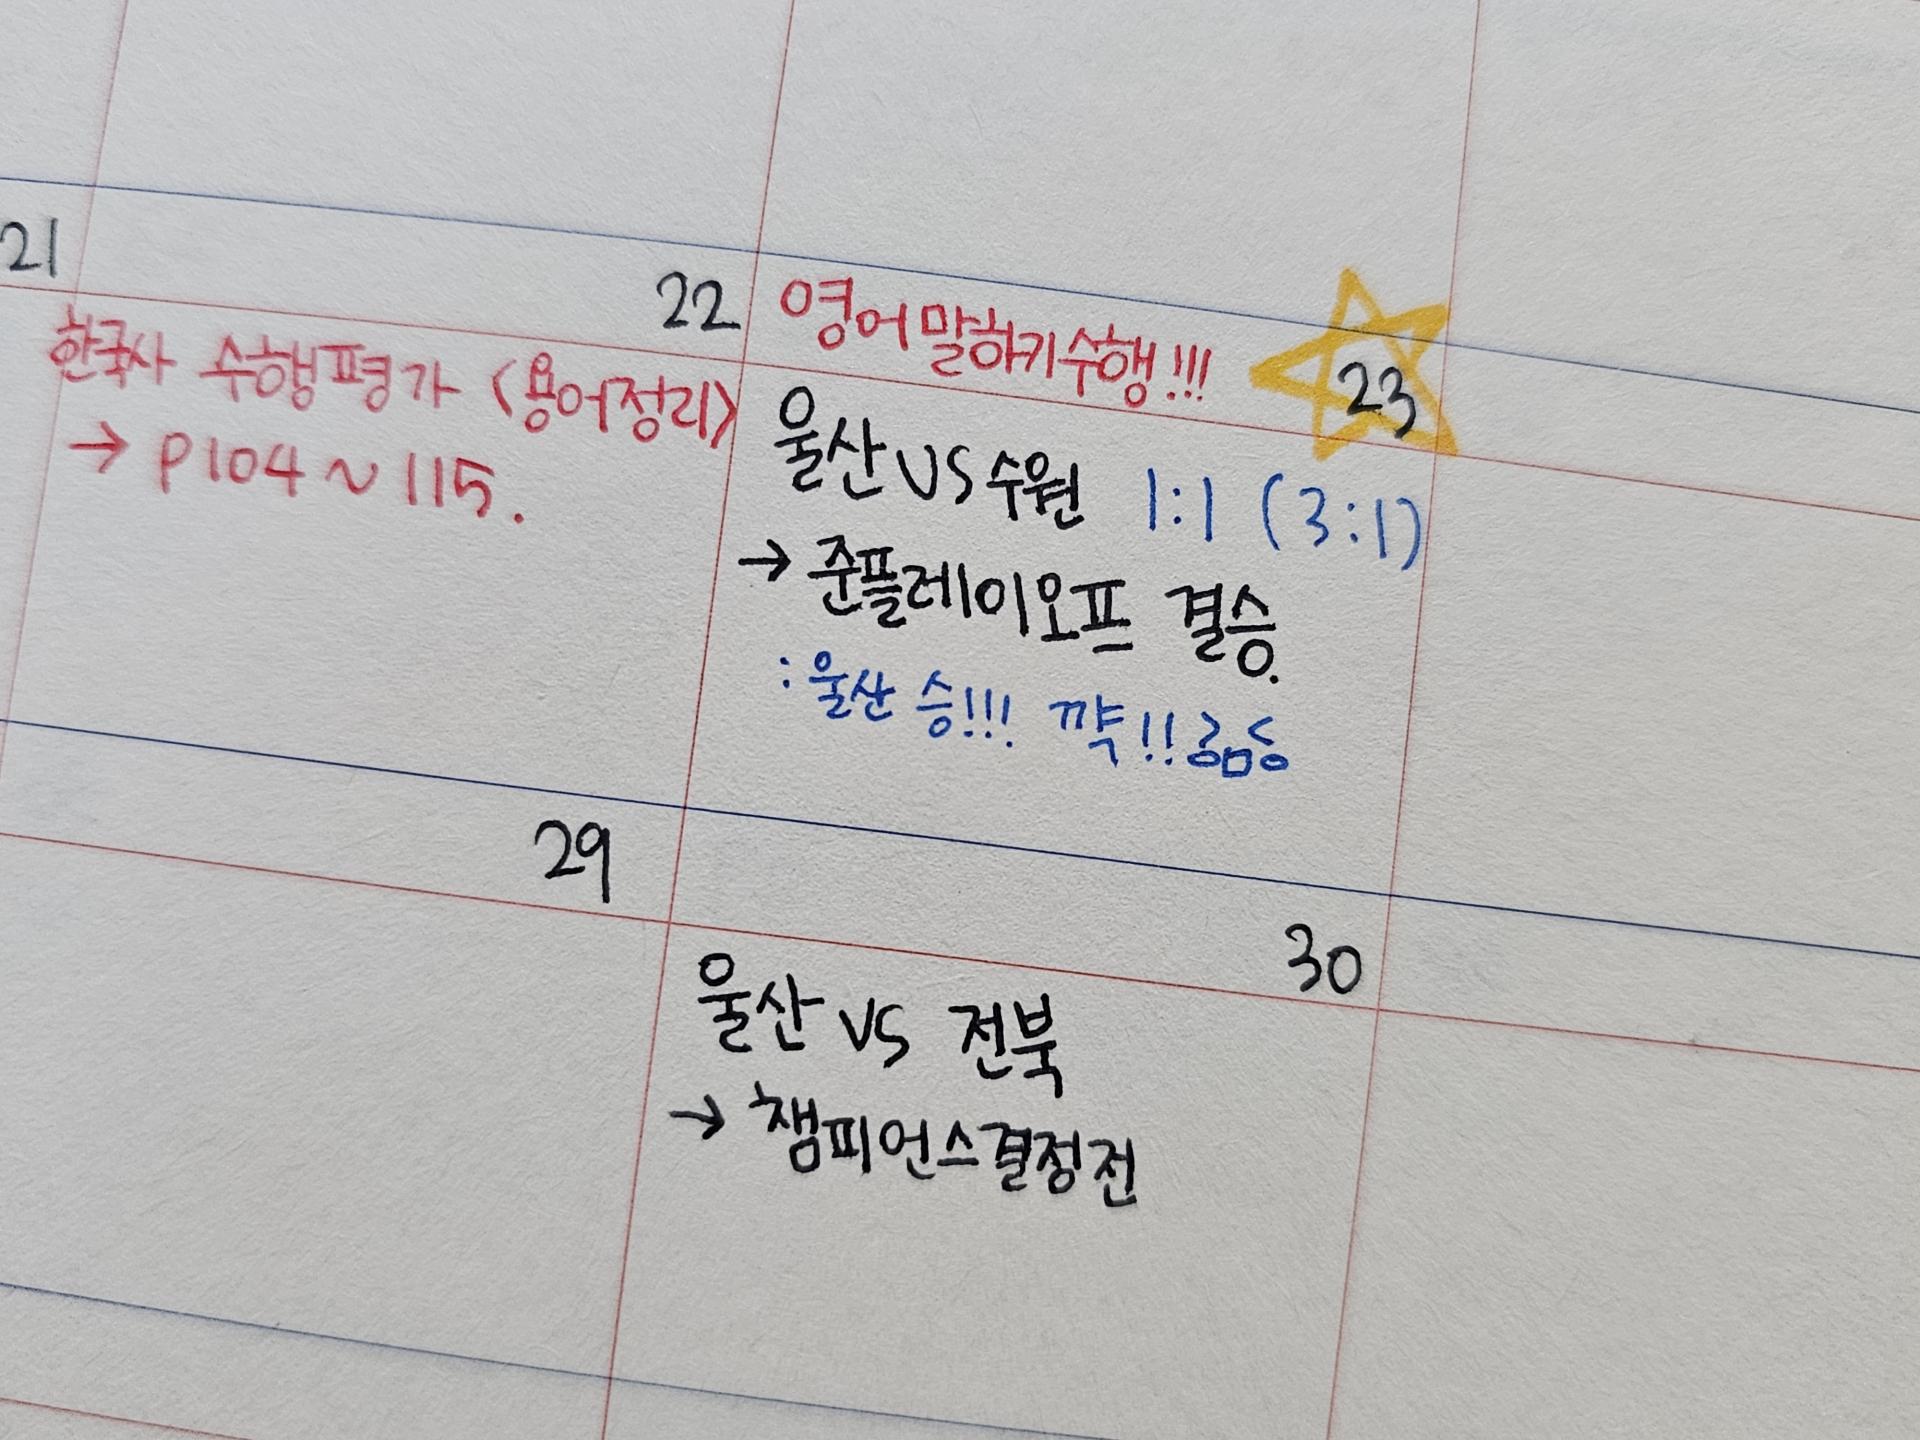 21
22
한국사 수행평가 <용어정리>
→ P104~115.
영어말하기수행!!!
23
울산 VS 수원 1:1 (3:1)
→ 준플레이오프 결승.
:울산 승!!! 꺅!!
29
30
울산 VS 전북
→ 챔피언스결정전